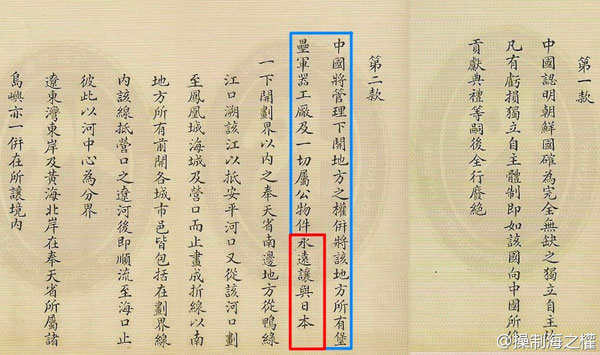 第一款
中國認明朝鮮國確為完全無缺之獨立自主故
凡有虧損獨立自主體制即如該國向中國所修
貢獻典禮等嗣後全行廢絕
第二款
中國將管理下開地方之權併將該地方所有堡
壘軍器工廠及一切屬公物件永遠讓與日本
一下開劃界以內之奉天省南邊地方從鴨綠
江口溯該江以抵安平河口又從該河口劃
至鳳凰城海城及營口而止畫成折線以南
地方所有前開各城市邑皆包括在劃界線
內該線抵營口之遼河後即順流至海口止
彼此以河中心為分界
遼東灣東岸及黃海北岸在奉天省所屬諸
島嶼亦一併在所讓境內
@操制海之權